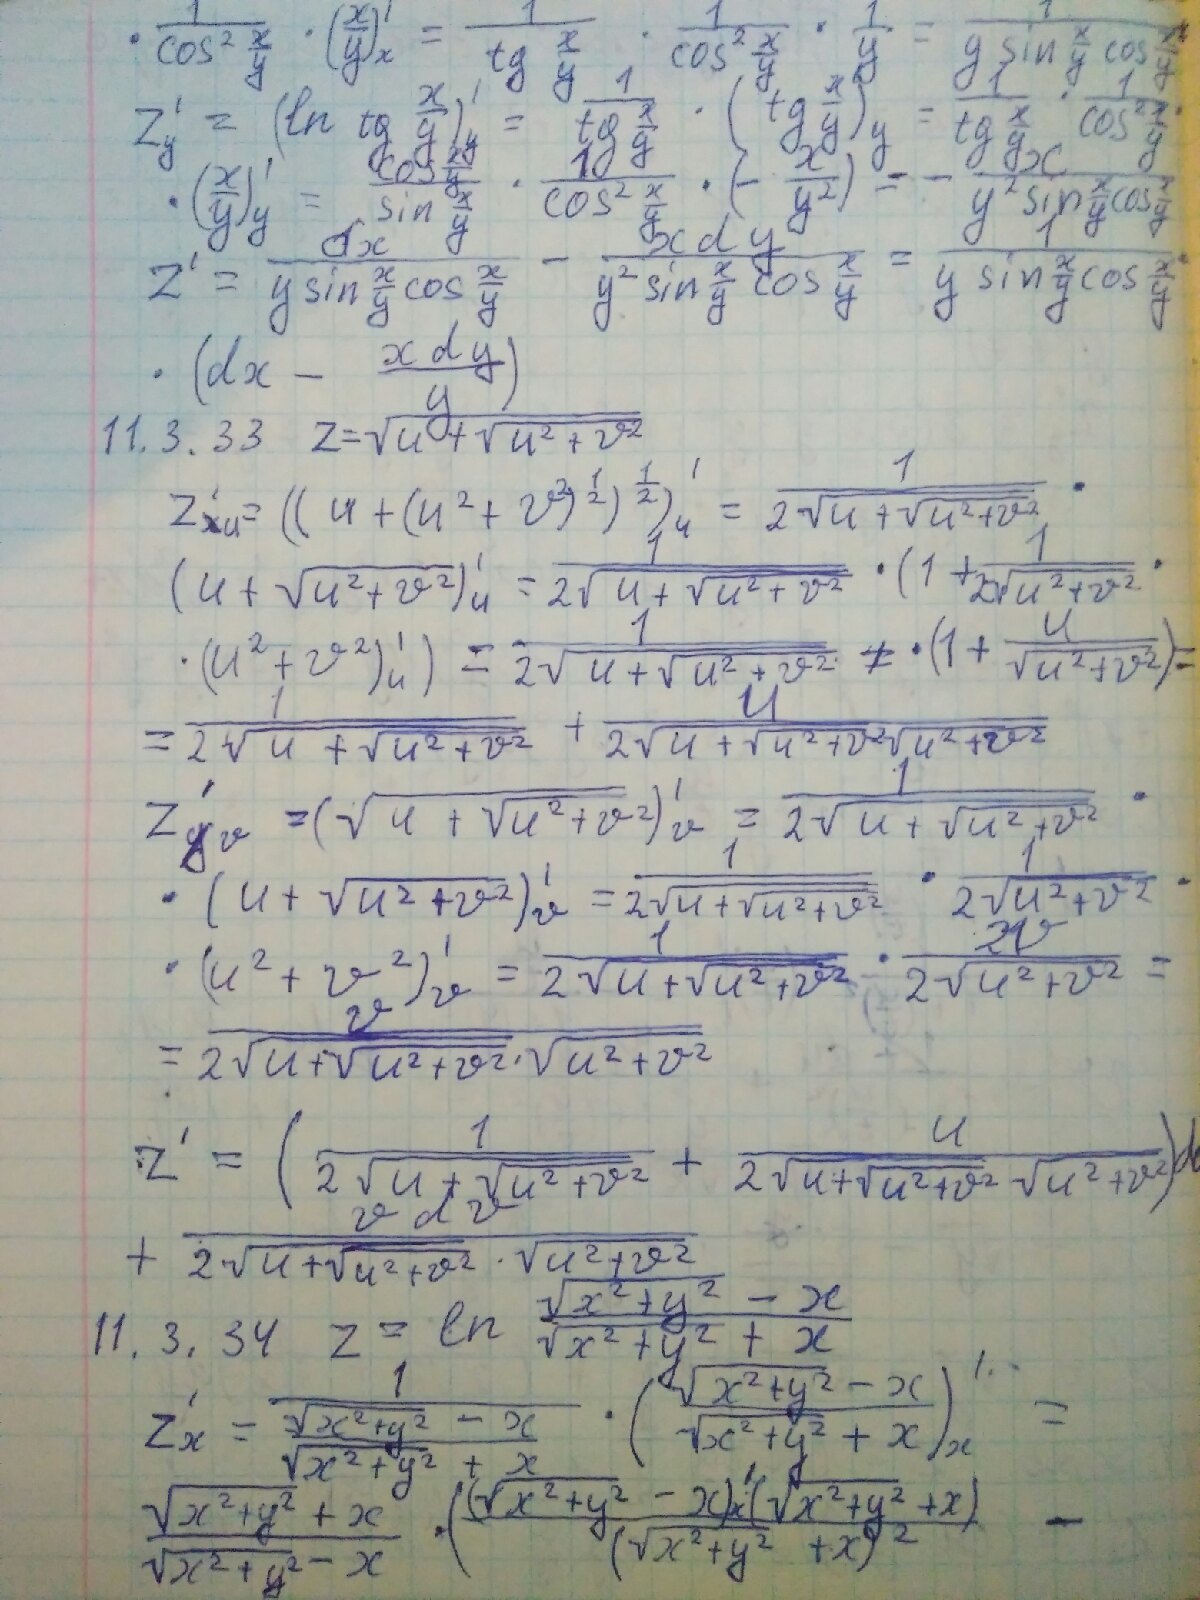 · 1/(cos² x/y) · (x/y)'ₓ = 1/(tg x/y) · 1/(cos² x/y) · 1/y = 1/(y sin x/y cos x/y)
z'_y = (ln tg x/y)'_y = 1/(tg x/y) · (tg x/y)'_y = 1/(tg x/y) · 1/(cos² x/y) ·
· (x/y)'_y = (cos x/y)/(sin x/y) · 1/(cos² x/y) · (− x/y²) = − x/(y² sin x/y cos x/y)
z' = dx/(y sin x/y cos x/y) − x dy/(y² sin x/y cos x/y) = 1/(y sin x/y cos x/y) ·
· (dx − x dy/y)
11.3.33 z=√(u+√(u²+v²))
z'_u = ((u+(u²+v²)^(1/2))^(1/2))'_u = 1/(2√(u+√(u²+v²))) ·
(u+√(u²+v²))'_u = 1/(2√(u+√(u²+v²))) · (1+ 1/(2√(u²+v²)) ·
· (u²+v²)'_u) = 1/(2√(u+√(u²+v²))) · (1+ u/√(u²+v²)) =
= 1/(2√(u+√(u²+v²))) + u/(2√(u+√(u²+v²)) √(u²+v²))
z'_v = (√(u+√(u²+v²)))'_v = 1/(2√(u+√(u²+v²))) ·
· (u+√(u²+v²))'_v = 1/(2√(u+√(u²+v²))) · 1/(2√(u²+v²)) ·
· (u²+v²)'_v = 1/(2√(u+√(u²+v²))) · 2v/(2√(u²+v²)) =
= v/(2√(u+√(u²+v²)) · √(u²+v²))
z' = (1/(2√(u+√(u²+v²))) + u/(2√(u+√(u²+v²)) √(u²+v²)))d
+ v dv/(2√(u+√(u²+v²)) · √(u²+v²))
11.3.34 z = ln (√(x²+y²) − x)/(√(x²+y²) + x)
z'ₓ = 1/((√(x²+y²) − x)/(√(x²+y²) + x)) · ((√(x²+y²) − x)/(√(x²+y²) + x))'ₓ =
(√(x²+y²) + x)/(√(x²+y²) − x) · ((√(x²+y²) − x)'ₓ(√(x²+y²) + x)/(√(x²+y²) + x)² −